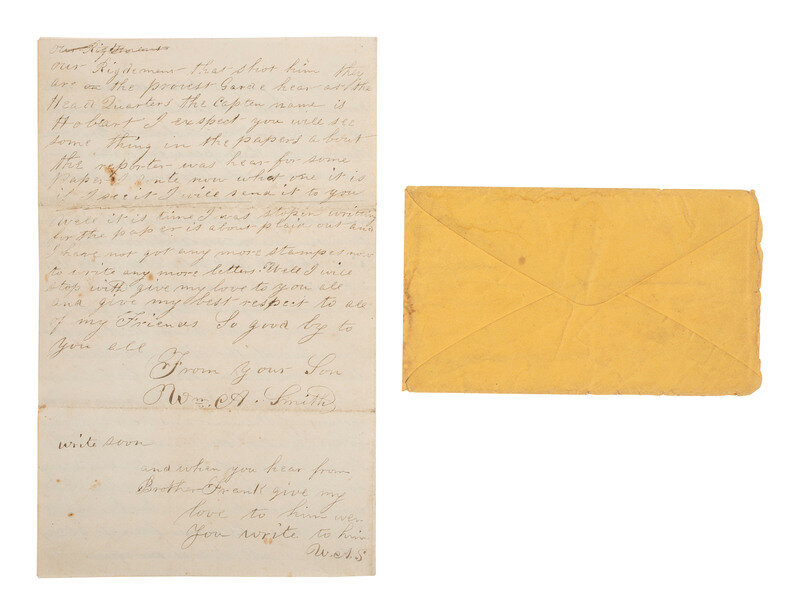 our Rigdemens
our Rigdemens that shot him they
are on the provest Garde hear at the
Head Quarters the Capten name is
Hobart I expect you will see
some thing in the papers about
the reporter was hear for some
Paper I dont now what one it is
if I see it I will send it to you
well it is time I was stopen writing
for the paper is about plaid out and
I have not got any more stampes now
to write any more letters. Well I will
stop with give my love to you all
and give my best respect to all
of my Friends So good by to
you all
From your Son
Wm. A. Smith
write soon
and when you hear from
Brother Frank give my
love to him wen
You write to him
W A S